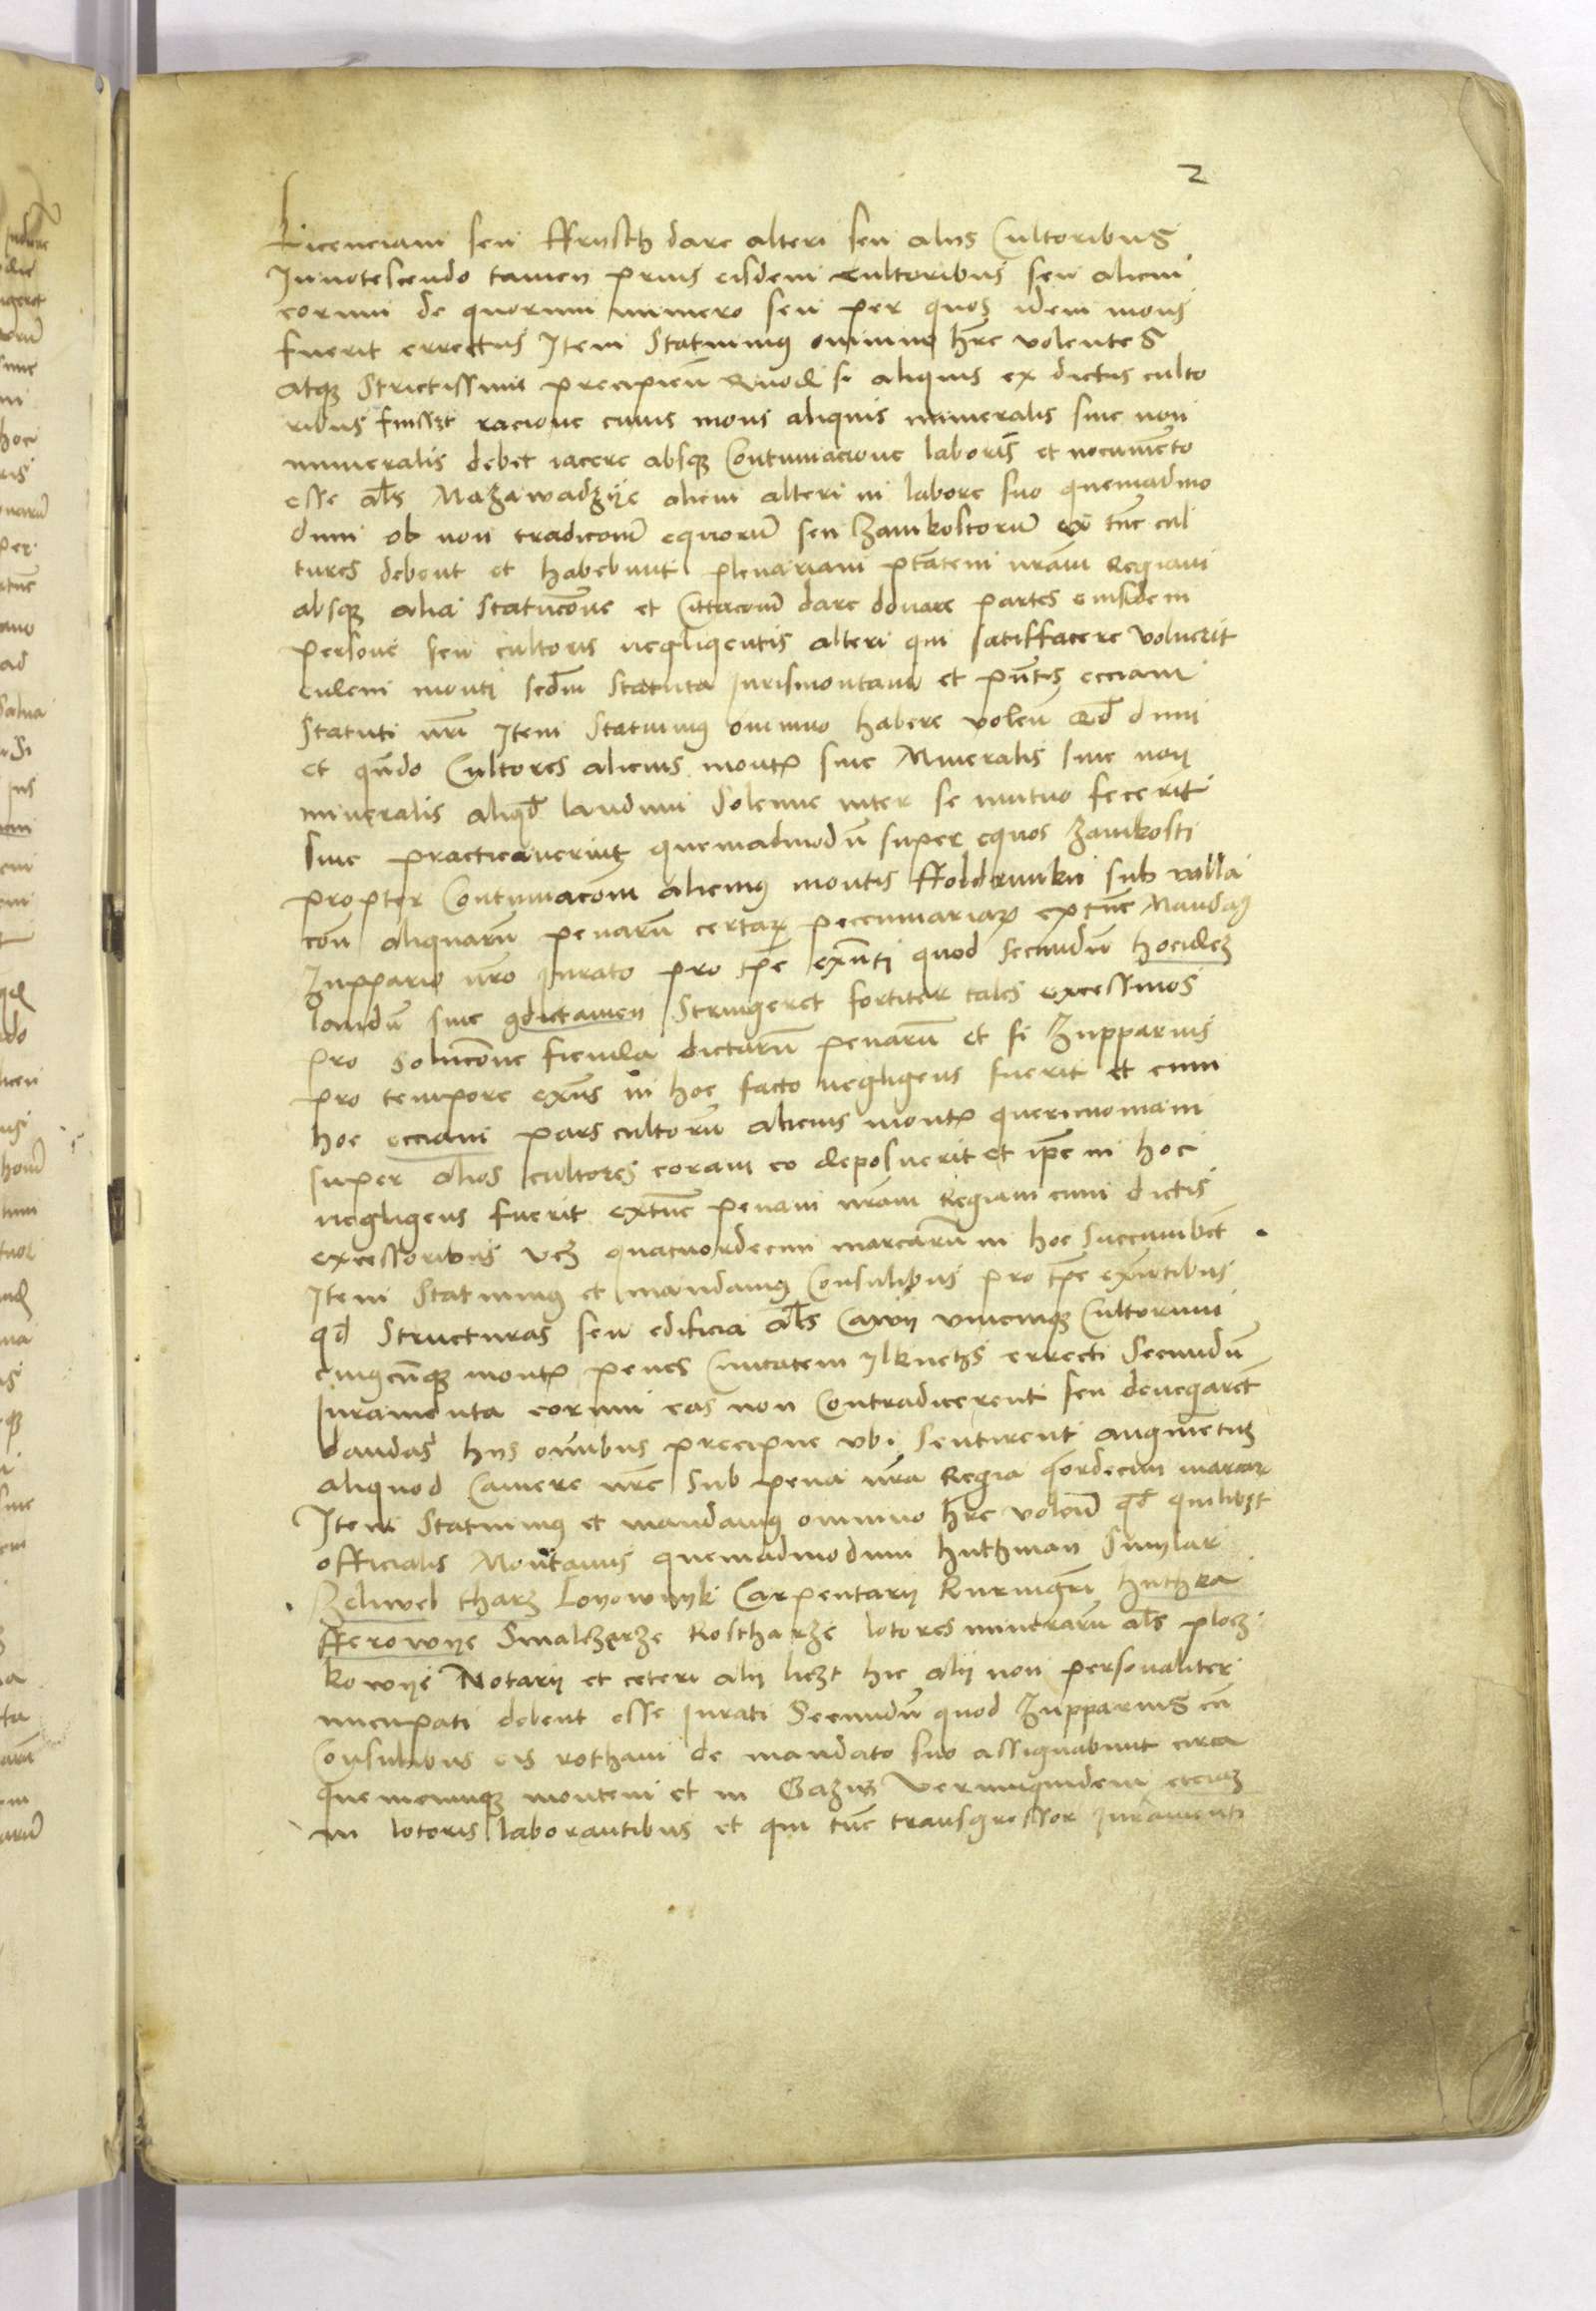 2
Licenciam seu ffrysth dare alteri seu aliis Cultoribus
Innotescendo tamen prius eisdem cultoribus seu alicui
eorum de quorum numero seu per quos idem mons
fuerit errectus Item Statuimus omnino hre volentes
atqz Strictissime precipien Quod si aliquis ex dictis culto
ribus fuisset racione cuius mons aliquis mineralis siue non
mineralis debet iacere absqz Contumacione laboris et nocumento
esse als Nazawadzye alicui alteri in labore suo quemadmo
dum ob non tradicom equorum seu Zamkostorum ex tunc cul
tures debent et habebunt plenariam ptatem nram Regiam
absqz alia statucone et Cittacom dare donare partes eiusdem
persone seu cultoris negligentis alteri qui satisfacere voluerit
eidem monti sedm statuta Jurismontani et pntis ecciam
statuti nri Item Statuimus omnino habere volen Qd dum
et qndo Cultores alicuius montis siue Mineralis siue non
mineralis aliqd laudum Solenne inter se mutuo fecerint
siue practicauerint quemadmodum super equos Zamkosti
propter Contumacom alicuius montis ffoldrunku sub valla
con aliquarum penarum certarum pecuniariarum extunc Mandamus
Zuppario nro Jurato pro tpe exnti quod secundum hocidem
laudum siue 9dictamen Stringeret fortiter tales excessiuos
pro solucone fienda dictarum penarum et si Zupparius
pro tempore exns in hoc facto negligens fuerit et cum
hoc ecciam pars cultorum alicuius montis querimoniam
super alios cultores coram eo deposuerit et ipe in hoc
negligens fuerit extunc penam nram Regiam cum dictis
excessoribus vcz quatuordecim marcarum in hoc succumbet
Item Statuimus et mandamus Consulibus pro tpe exntibus
qd Structuras seu edificia als Cawy vnicuiqz Cultorum
cuiuscunqz montis penes Ciuitatem ylkusch errecti Secundum
Juramenta eorum eas non Contradicerent seu denegarent
dandas hys omibus precipue vbi sentirent augmentum
aliquod Camere nre sub pena nra Regia qordecim marcar
Item Statuimus et mandamus omnino hre volen qd quilibet
officialis Montanus quemadmodum huthman Smylar
Zeliwel tharz Loyownyk Carpentarij huthka
fferownye Smalczerze Rostharze lotores minerarum als plocz
kownye Notarij et ceteri alij liczt hic alij non personaliter
nucupati debent esse Jurati Secundum quod Zupparius cum
Consulibus eis rotham de mandato suo assignabunt circa
quemcumqz montem et in verumquidem ecciam
in lotoris laborantibus et qui tunc transgressor Juramenti